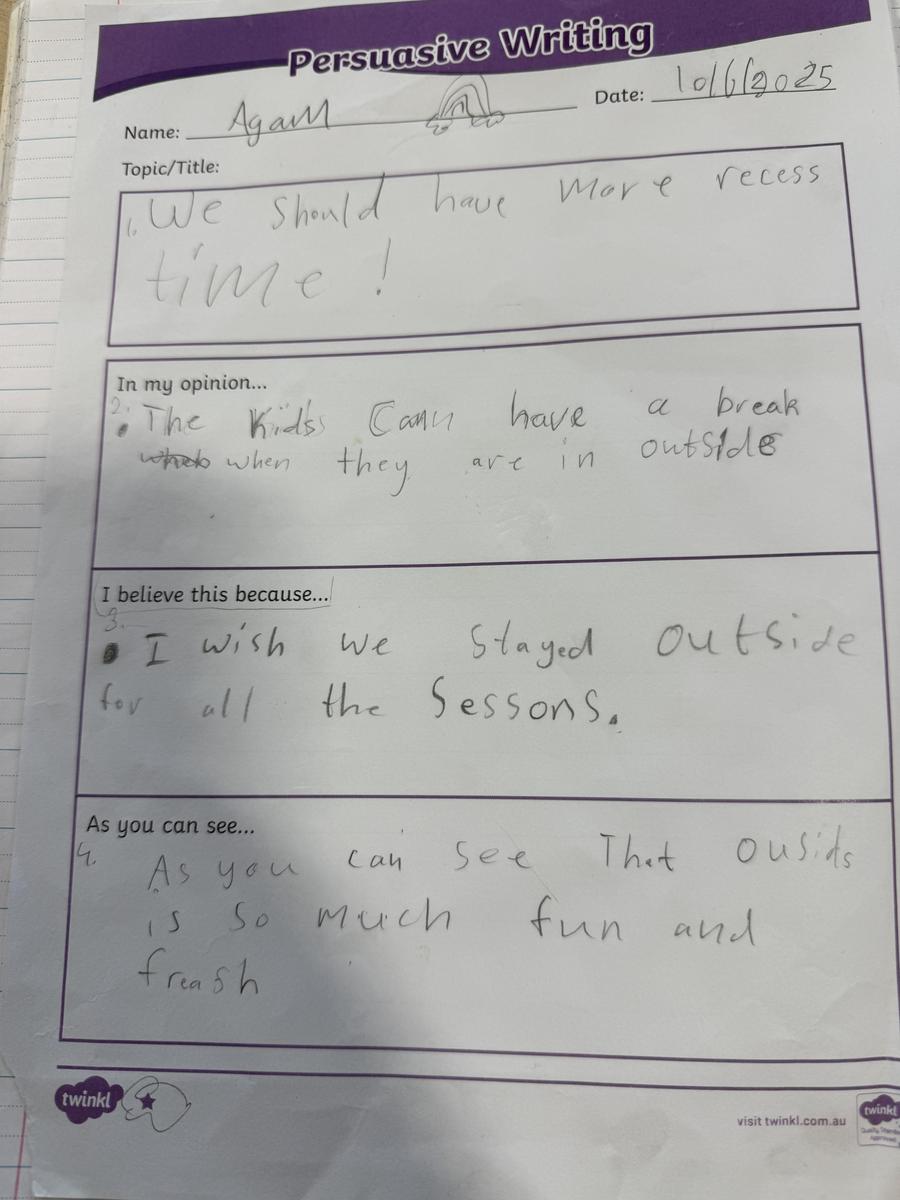 Persuasive Writing
Name: Agam
Date: 10/6/2025
Topic/Title:
1. We should have more recess
time!
In my opinion...
2. The Kids Can have a break
when they are in outside
I believe this because...
3. I wish we stayed outside
for all the Sessons.
As you can see...
4. As you can see That ousids
is so much fun and
freash
twinkl
visit twinkl.com.au
twinkl